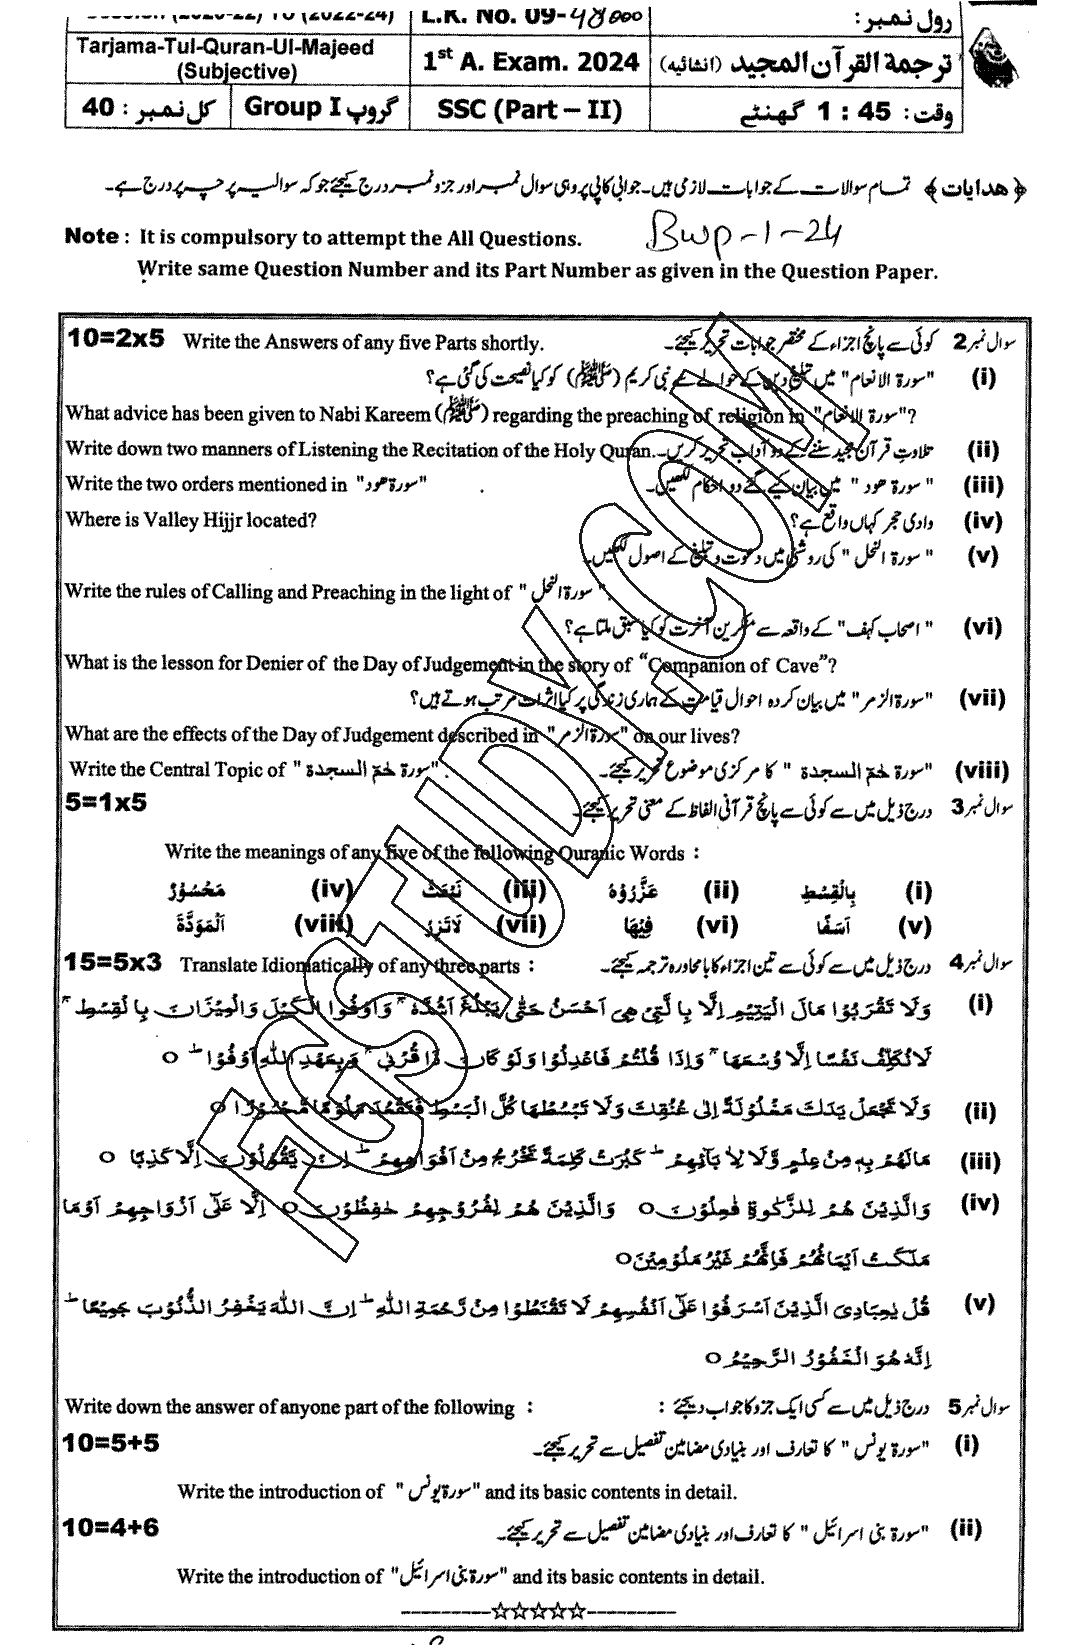 Session (2020-22) To (2022-24) L.K. No. 09-48000 رول نمبر:
Tarjama-Tul-Quran-Ul-Majeed (Subjective) 1st A. Exam. 2024 ترجمۃ القرآن المجید (انشائیہ)
کل نمبر : 40 Group I گروپ SSC (Part – II) وقت: 1 : 45 گھنٹے
﴿ ھدایات ﴾ تمام سوالات کے جوابات لازمی ہیں۔ جوابی کاپی پر وہی سوال نمبر اور جزو نمبر درج کیجئے جو کہ سوالیہ پرچہ پر درج ہے۔
Note : It is compulsory to attempt the All Questions. Bwp-1-24
Write same Question Number and its Part Number as given in the Question Paper.
10=2x5 Write the Answers of any five Parts shortly. سوال نمبر 2 کوئی سے پانچ اجزاء کے مختصر جوابات تحریر کیجئے۔
(i) "سورۃ الانعام" میں تبلیغ دین کے حوالے سے نبی کریم (ﷺ) کو کیا نصیحت کی گئی ہے؟
What advice has been given to Nabi Kareem (ﷺ) regarding the preaching of religion in "سورۃ الانعام"?
Write down two manners of Listening the Recitation of the Holy Quran. (ii) تلاوتِ قرآن مجید سننے کے دو آداب تحریر کریں۔
Write the two orders mentioned in "سورۃ ھود" (iii) "سورۃ ھود" میں بیان کیے گئے دو احکام لکھیں۔
Where is Valley Hijjr located? (iv) وادی حجر کہاں واقع ہے؟
(v) "سورۃ النحل" کی روشنی میں دعوت و تبلیغ کے اصول لکھیں۔
Write the rules of Calling and Preaching in the light of "سورۃ النحل".
(vi) "اصحاب کہف" کے واقعہ سے منکرین آخرت کو کیا سبق ملتا ہے؟
What is the lesson for Denier of the Day of Judgement in the story of "Companion of Cave"?
(vii) "سورۃ الزمر" میں بیان کردہ احوال قیامت کے ہماری زندگی پر کیا اثرات مرتب ہوتے ہیں؟
What are the effects of the Day of Judgement described in "سورۃ الزمر" on our lives?
Write the Central Topic of "سورۃ حٰمٓ السجدۃ". (viii) "سورۃ حٰمٓ السجدۃ" کا مرکزی موضوع تحریر کیجئے۔
5=1x5 سوال نمبر 3 درج ذیل میں سے کوئی سے پانچ قرآنی الفاظ کے معنی تحریر کیجئے۔
Write the meanings of any five of the following Quranic Words :
(i) بِالْقِسْطِ (ii) عَزَّرُوْهُ (iii) نَبْعَثُ (iv) مَحْسُوْرًا
(v) اَسَفًا (vi) فِيْهَا (vii) لَا تَزِرُ (viii) اَلْمَوَدَّةَ
15=5x3 Translate Idiomatically of any three parts : سوال نمبر 4 درج ذیل میں سے کوئی سے تین اجزاء کا بامحاورہ ترجمہ کیجئے۔
(i) وَلَا تَقْرَبُوْا مَالَ الْيَتِيْمِ اِلَّا بِالَّتِيْ هِيَ اَحْسَنُ حَتّٰى يَبْلُغَ اَشُدَّهٗ ۚ وَاَوْفُوا الْكَيْلَ وَالْمِيْزَانَ بِالْقِسْطِ ۚ
لَا نُكَلِّفُ نَفْسًا اِلَّا وُسْعَهَا ۚ وَاِذَا قُلْتُمْ فَاعْدِلُوْا وَلَوْ كَانَ ذَا قُرْبٰى ۚ وَبِعَهْدِ اللّٰهِ اَوْفُوْا ؕ ○
(ii) وَلَا تَجْعَلْ يَدَكَ مَغْلُوْلَةً اِلٰى عُنُقِكَ وَلَا تَبْسُطْهَا كُلَّ الْبَسْطِ فَتَقْعُدَ مَلُوْمًا مَّحْسُوْرًا ○
(iii) مَا لَهُمْ بِهٖ مِنْ عِلْمٍ وَّلَا لِاٰبَآئِهِمْ ؕ كَبُرَتْ كَلِمَةً تَخْرُجُ مِنْ اَفْوَاهِهِمْ ؕ اِنْ يَّقُوْلُوْنَ اِلَّا كَذِبًا ○
(iv) وَالَّذِيْنَ هُمْ لِلزَّكٰوةِ فٰعِلُوْنَ ○ وَالَّذِيْنَ هُمْ لِفُرُوْجِهِمْ حٰفِظُوْنَ ○ اِلَّا عَلٰٓى اَزْوَاجِهِمْ اَوْ مَا
مَلَكَتْ اَيْمَانُهُمْ فَاِنَّهُمْ غَيْرُ مَلُوْمِيْنَ ○
(v) قُلْ يٰعِبَادِيَ الَّذِيْنَ اَسْرَفُوْا عَلٰٓى اَنْفُسِهِمْ لَا تَقْنَطُوْا مِنْ رَّحْمَةِ اللّٰهِ ؕ اِنَّ اللّٰهَ يَغْفِرُ الذُّنُوْبَ جَمِيْعًا ؕ
اِنَّهٗ هُوَ الْغَفُوْرُ الرَّحِيْمُ ○
Write down the answer of anyone part of the following : سوال نمبر 5 درج ذیل میں سے کسی ایک جزو کا جواب دیجئے :
10=5+5 (i) "سورۃ یونس" کا تعارف اور بنیادی مضامین تفصیل سے تحریر کیجئے۔
Write the introduction of "سورۃ یونس" and its basic contents in detail.
10=4+6 (ii) "سورۃ بنی اسرائیل" کا تعارف اور بنیادی مضامین تفصیل سے تحریر کیجئے۔
Write the introduction of "سورۃ بنی اسرائیل" and its basic contents in detail.
----------☆☆☆☆☆----------
FGSTUDY.COM